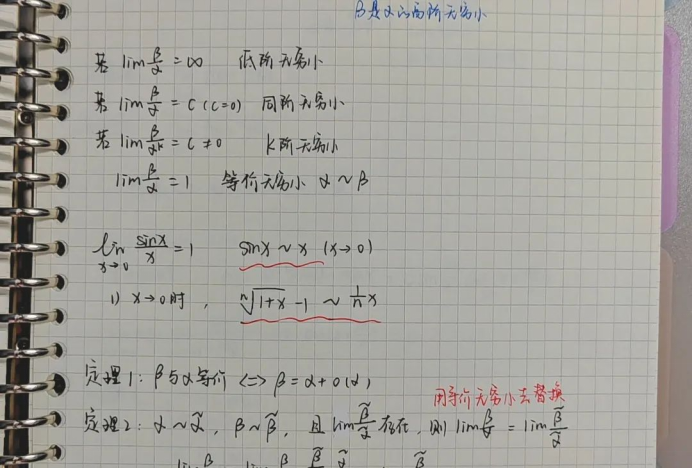 β是α的高阶无穷小
若 lim β/α = ∞ 低阶无穷小
若 lim β/α = C (C=0) 同阶无穷小
若 lim β/αᵏ = C ≠ 0 k阶无穷小
lim β/α = 1 等价无穷小 α ~ β
lim x→0 sinx/x = 1 sinx ~ x (x→0)
1) x→0时, ⁿ√1+x - 1 ~ 1/n x
定理1: β与α等价 <=> β = α + o(α)
用等价无穷小去替换
定理2: α ~ α̃, β ~ β̃, 且 lim β̃/α̃ 存在, 则 lim β/α = lim β̃/α̃